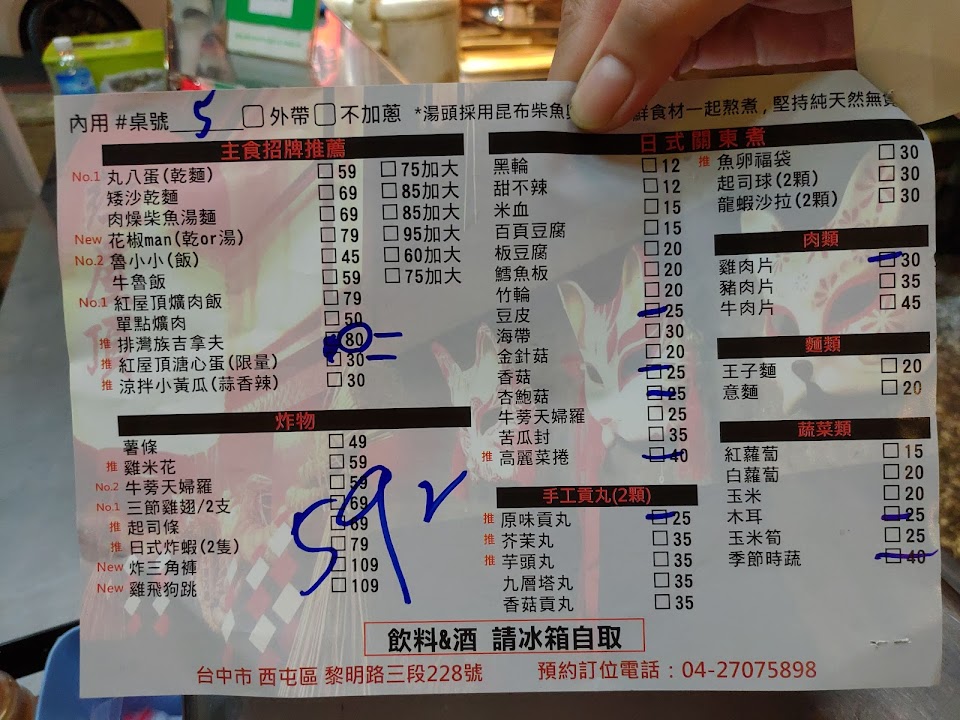 內用 #桌號 5 □外帶 □不加蔥 *湯頭採用昆布柴魚 鮮食材一起熬煮,堅持純天然無
主食招牌推薦
No.1 丸八蛋(乾麵) □59 □75加大
矮沙乾麵 □69 □85加大
肉燥柴魚湯麵 □69 □85加大
New 花椒man(乾or湯) □79 □95加大
No.2 魯小小(飯) □45 □60加大
牛魯飯 □59 □75加大
No.1 紅屋頂爌肉飯 □79
單點爌肉 □50
推 排灣族吉拿夫 □80
推 紅屋頂溏心蛋(限量) □30
推 涼拌小黃瓜(蒜香辣) □30
炸物
薯條 □49
推 雞米花 □59
No.2 牛蒡天婦羅 □59
No.1 三節雞翅/2支 □69
推 起司條 □69
推 日式炸蝦(2隻) □79
New 炸三角褲 □109
New 雞飛狗跳 □109
592
日式關東煮
黑輪 □12
甜不辣 □12
米血 □15
百頁豆腐 □15
板豆腐 □20
鱈魚板 □20
竹輪 □20
豆皮 □25
海帶 □30
金針菇 □20
香菇 □25
杏鮑菇 □25
牛蒡天婦羅 □25
苦瓜封 □35
推 高麗菜捲 □40
手工貢丸(2顆)
推 原味貢丸 □25
推 芥茉丸 □35
推 芋頭丸 □35
九層塔丸 □35
香菇貢丸 □35
推 魚卵福袋 □30
起司球(2顆) □30
龍蝦沙拉(2顆) □30
肉類
雞肉片 □30
豬肉片 □35
牛肉片 □45
麵類
王子麵 □20
意麵 □20
蔬菜類
紅蘿蔔 □15
白蘿蔔 □20
玉米 □20
木耳 □25
玉米筍 □25
季節時蔬 □40
飲料&酒 請冰箱自取
台中市 西屯區 黎明路三段228號 預約訂位電話:04-27075898